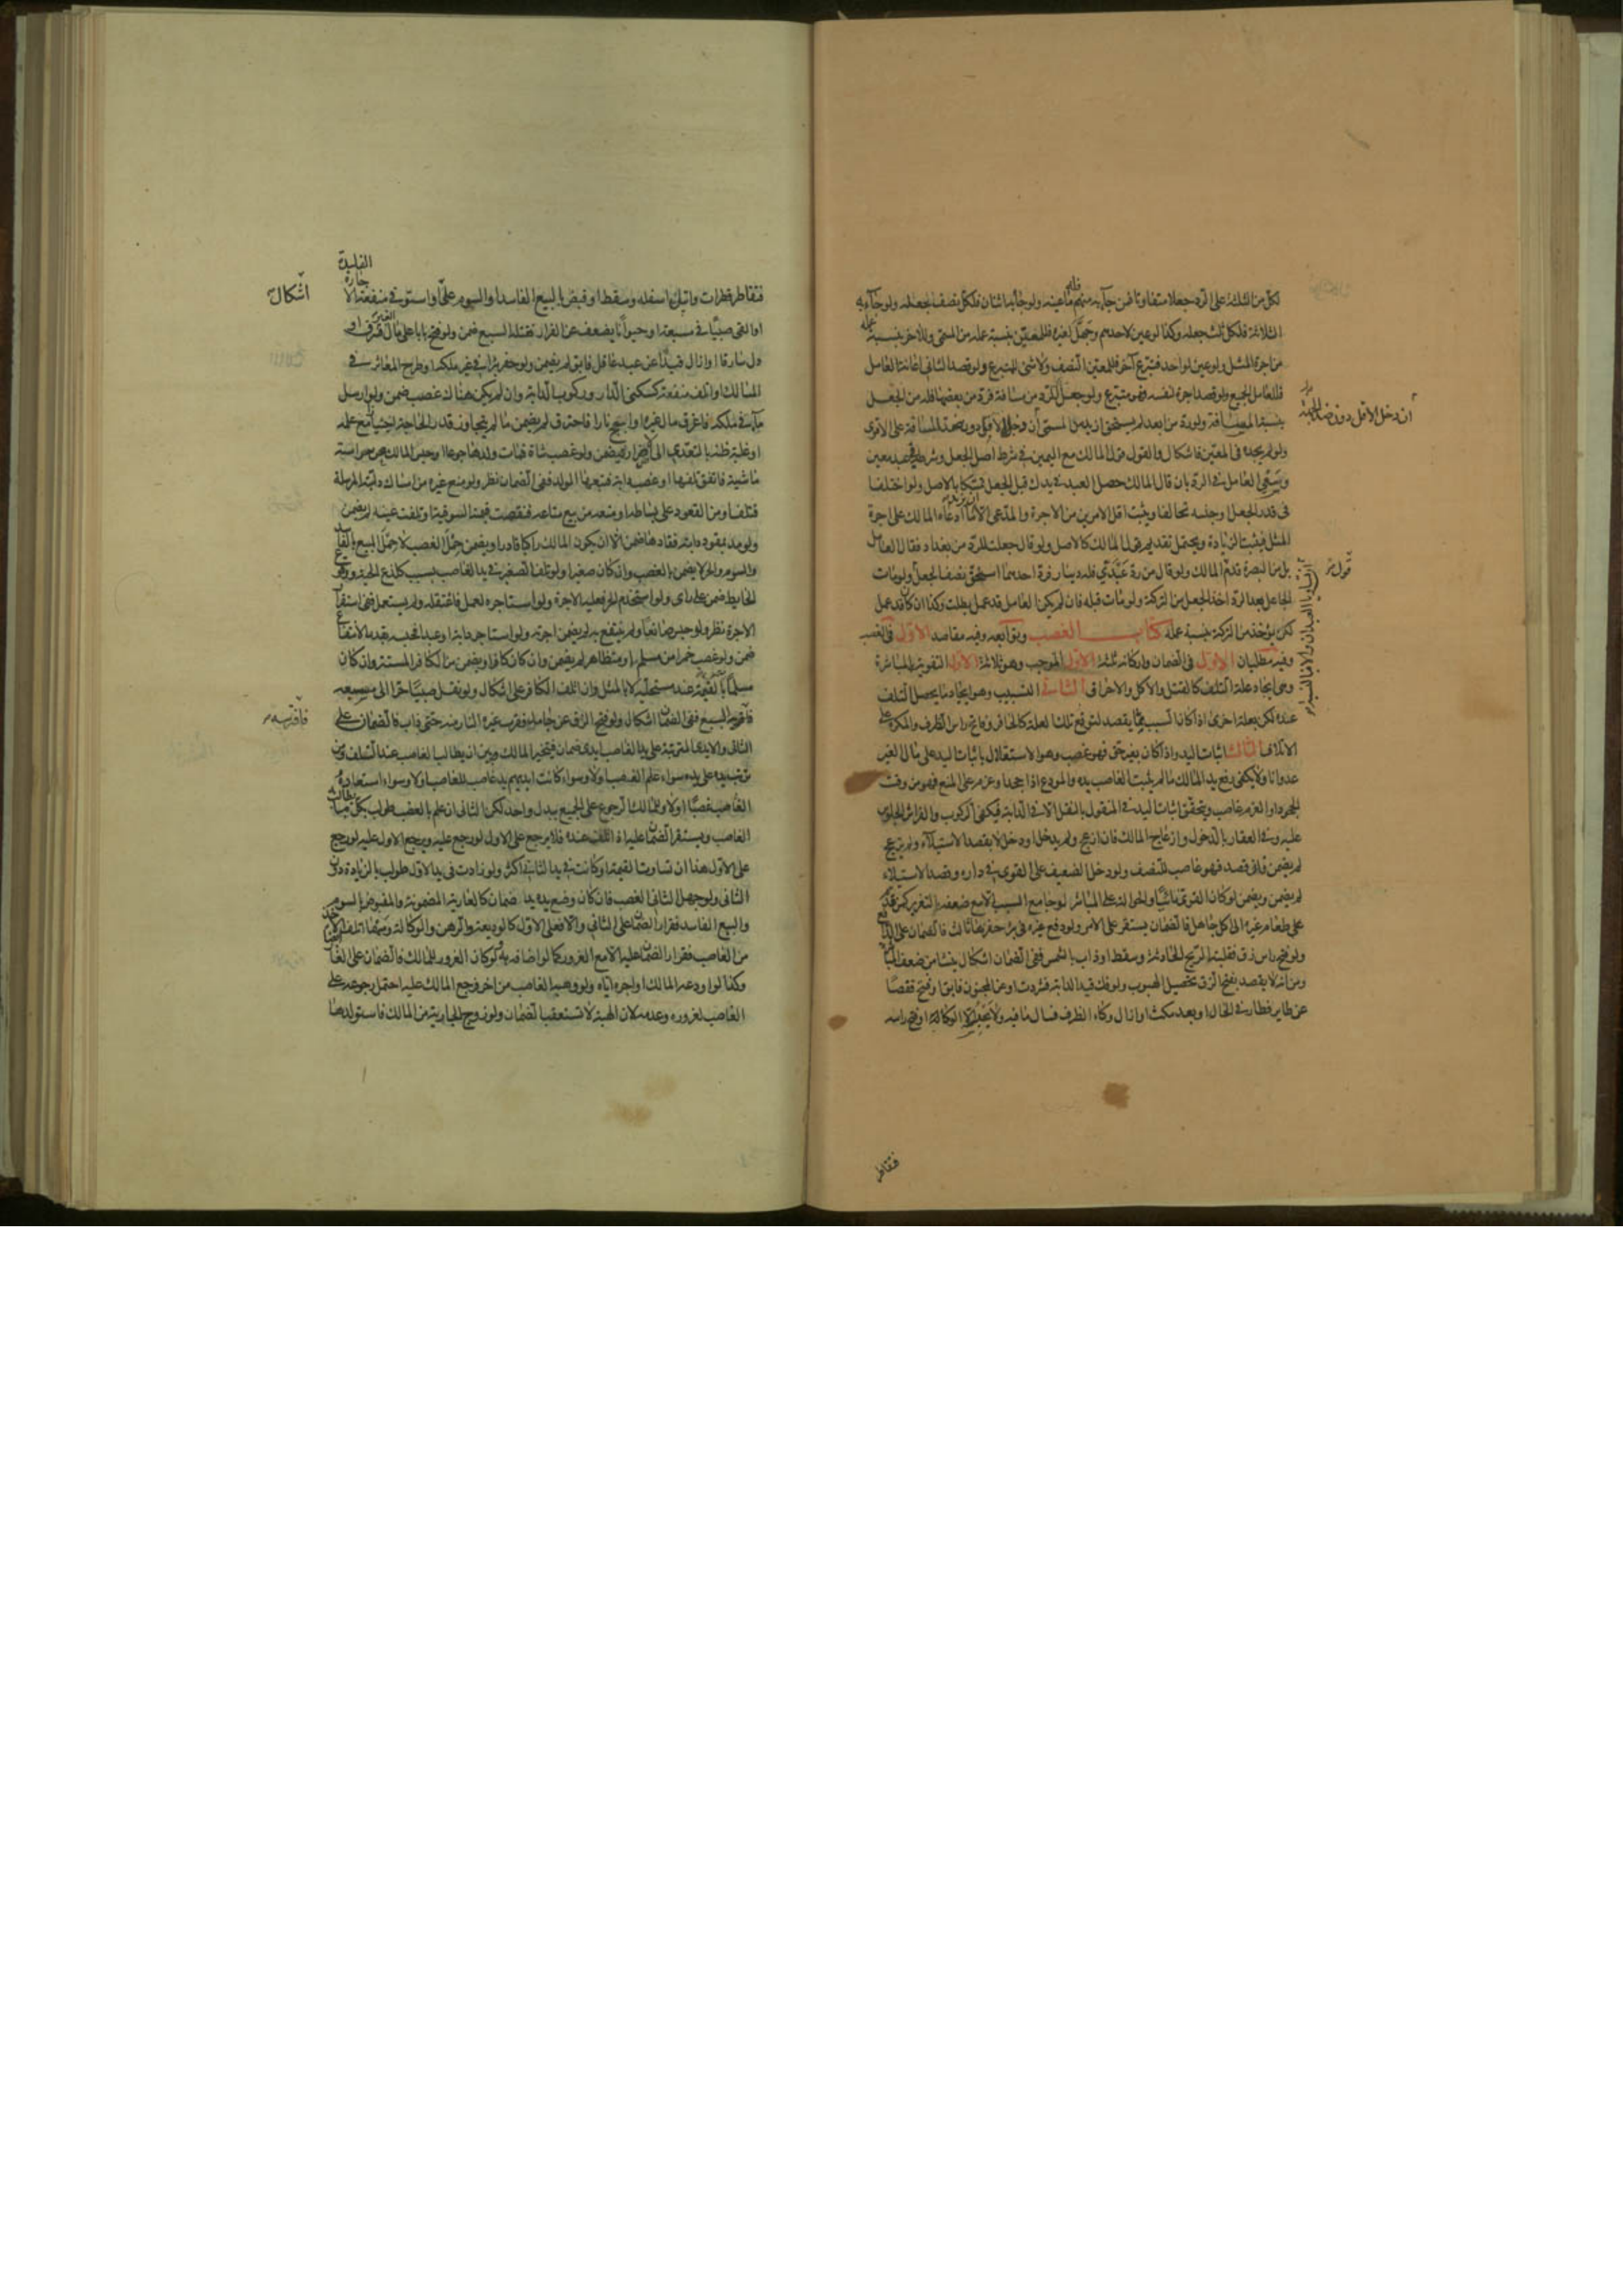 لكل من الثلاثة على الرد جعلا متفاوتا فمن جاء به منهم فله ما عينه ولو جاء به اثنان فلكل نصف جعله ولو جاء به
الثلاثة فلكل ثلث جعله وكذا لو عين لاحدهم وجهل لغيره فللمعين بنسبة عمله من المسمى وللاخر بنسبة عمله
من اجرة المثل ولو عين لواحد فتبرع آخر فللمعين النصف ولا شئ للمتبرع ولو قصد الثانى اعانة العامل
فللعامل الجميع ولو قصد اجرة لنفسه فهو متبرع ولو جعل للرد من مسافة فرد من بعضها فله من الجعل
بنسبة المسافة ولو رده من ابعد لم يستحق ازيد من المسمى
ان دخل الاقل دون ضد الجهة
ولو لم يجده فى المعين فاشكال والقول قول المالك مع اليمين فى شرط اصل الجعل وشرطه فى عبد معين
وسعى العامل فى الرد بان قال المالك حصل العبد فى يدك قبل الجعل تمسكا بالاصل ولو اختلفا
فى قدر الجعل وجنسه تحالفا ويثبت اقل الامرين من الاجرة والمدعى الا ان يزيد ما ادعاه المالك على اجرة
المثل فيثبت الزيادة ويحتمل تقديم قول المالك كالاصل ولو قال جعلت للرد من بغداد فقال العامل
بل من البصرة قدم المالك ولو قال من رد عبدي فله دينار فرد احدهما استحق نصف الجعل ولو مات
قول
الجاعل بعد الرد اخذ الجعل من التركة ولو مات قبله فان لم يكن العامل قد عمل بطلت وكذا ان كان قد عمل
لكن يؤخذ من التركة بنسبة عمله كتاب الغصب وتوابعه وفيه مقاصد الاول فى الغصب
وفيه مطلبان الاول فى الضمان واركانه ثلثة الاول الموجب وهو ثلاثة الاول التفويت بالمباشرة
وهى ايجاد علة التلف كالقتل والاكل والاحراق الثانى التسبيب وهو ايجاد ما يحصل التلف
عنده لكن بعلة اخرى اذا كان السبب مما يقصد لتوقع تلك العلة كالحافر وفاتح راس الظرف والمكره على
الاتلاف الثالث اثبات اليد واذا كان بغير حق فهو غصب وهو الاستقلال باثبات اليد على مال الغير
عدوانا ولا يكفى رفع يد المالك ما لم يثبت الغاصب يده والمودع اذا جحد او عزم على المنع فهو من وقت
الجحود او العزم غاصب ويتحقق اثبات اليد فى المنقول بالنقل الا فى الدابة فيكفى الركوب والفراش الجلوس
عليه وفى العقار بالدخول وازعاج المالك فان ازعج ولم يدخل او دخل لا بقصد الاستيلاء ولم يزعج
لم يضمن وان قصد فهو غاصب للنصف ولو دخل الضعيف على القوى فى داره وقصد الاستيلاء
لم يضمن ويضمن لو كان القوى نائيا والحوالة على المباشر لو جامع السبب الا مع ضعفه بالتغرير كمن قدم
على طعام غيره الى آكل جاهل فالضمان يستقر على الامر ولو دفع غيره فى بئر حفرها ثالث فالضمان على الدافع
ولو فتح راس زق فقلبته الريح الحادثة وسقط او ذاب بالشمس ففى الضمان اشكال ينشا من ضعف المباشر
ومن انه لا يقصد بفتح الزق تحصيل الهبوب ولو فك قيد الدابة فشردت او عن المجنون فابق او فتح قفصا
عن طاير فطار فى الحال او بعد مكث او ازال وكاء الظرف فسال ما فيه ولا يحبسه الا الوكاء او فتح راسه
فتقاطر
الغليظة
فتقاطر قطرات وابتل اسفله وسقط او قبض بالبيع الفاسد او السوم على اشكال او استوفى منفعة الاجارة
اشكال
او القى صبيا فى مسبعة او حيوانا يضعف عن الفرار فقتله السبع ضمن ولو فتح بابا على مال الغير فسرق او
دل سارقا او ازال قيدا عن عبد عاقل فابق لم يضمن ولو حفر بئرا فى غير ملكه او طرح المعاثر فى
المسالك او اتلف منفعة كسكنى الدار وركوب الدابة وان لم يكن هناك غصب ضمن ولو ارسل
ماء فى ملكه فاغرق مال غيره او اجج نارا فاحترق لم يضمن ما لم يتجاوز قدر الحاجة اختيارا مع علمه
او غلبة ظنه بالتعدى الى الاضرار فيضمن ولو غصب شاة فمات ولدها جوعا او حبس المالك عن حراسة
ماشيته فاتفق تلفها او غصب دابة فتبعها الولد ففى الضمان نظر ولو منع غيره من امساك دابته المرسلة
فتلفت او من القعود على بساطه او منعه من بيع متاعه فنقصت قيمته السوقية او تلفت عينه لم يضمن
ولو مد بمقود دابة فقادها ضمن الا ان يكون المالك راكبا قادرا ويضمن حمل الغصب لا حمل المبيع بالفاسد
والسوم والحر لا يضمن بالغصب وان كان صغيرا ولو تلف الصغير فى يد الغاصب بسبب كلدغ الحية ووقوع
الحايط ضمن على راى ولو استخدم الحر فعليه الاجرة ولو استاجره لعمل فاعتقله ولم يستعمل ففى استقرار
الاجرة نظر ولو حبس صانعا ولم ينتفع به لم يضمن اجرته ولو استاجر دابة او عبدا فحبسه بقدر الانتفاع
ضمن ولو غصب خمرا من مسلم او متظاهر لم يضمن وان كان كافرا ويضمن من الكافر المستتر وان كان
مسلما بالقيمة عند مستحليه لا بالمثل وان اتلف الكافر على اشكال ولو نقل صبيا حرا الى مسبعة
فافترسه السبع ففى الضمان اشكال ولو فتح الزق عن جامد فقرب غيره النار منه حتى ذاب فالضمان على
فافترسه
الثانى والايدى المترتبة على يد الغاصب ايدى ضمان فيتخير المالك بين ان يطالب الغاصب عند التلف ومن
ترتبت يده على يده سواء علم الغصب او لا وسواء كانت ايديهم يد غاصب للغاصب او لا وسواء استعاده
الغاصب غصبا او لا وللمالك الرجوع على الجميع ببدل واحد لكن الثانى ان علم بالغصب طولب بكل ما يطالب به
الغاصب ويستقر الضمان عليه اذا تلف عنده فلا يرجع على الاول لو رجع عليه ويرجع الاول عليه لو رجع
على الاول هذا ان تساوت القيمة او كانت فى يد الثانى اكثر ولو زادت فى يد الاول طولب بالزيادة دون
الثانى ولو جهل الثانى الغصب فان كان وضع يده يد ضمان كالعارية المضمونة والمقبوض بالسوم
والبيع الفاسد فقرار الضمان على الثانى والا فعلى الاول كالوديعة والرهن والوكالة ومهما اتلف الاخذ
من الغاصب فقرار الضمان عليه الا مع الغرور كما لو اضافه به ولو كان الغرور للمالك فالضمان على الغاصب
وكذا لو اودعه المالك او اجره اياه ولو وهبه الغاصب من اخر فرجع المالك عليه احتمل رجوعه على
الغاصب لغروره وعدمه لان الهبة لا تستعقب الضمان ولو زوج الجارية من المالك فاستولدها